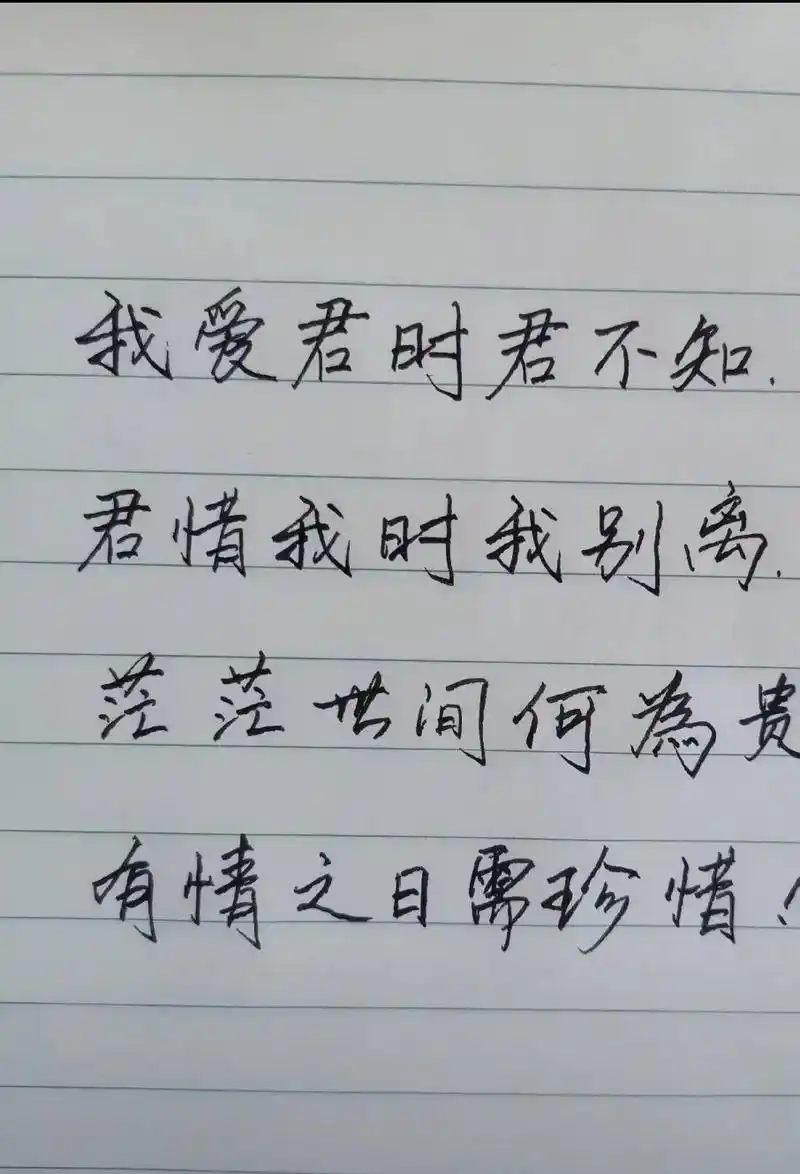 我爱君时君不知.
君惜我时我别离.
茫茫世间何為贵
有情之日需珍惜！